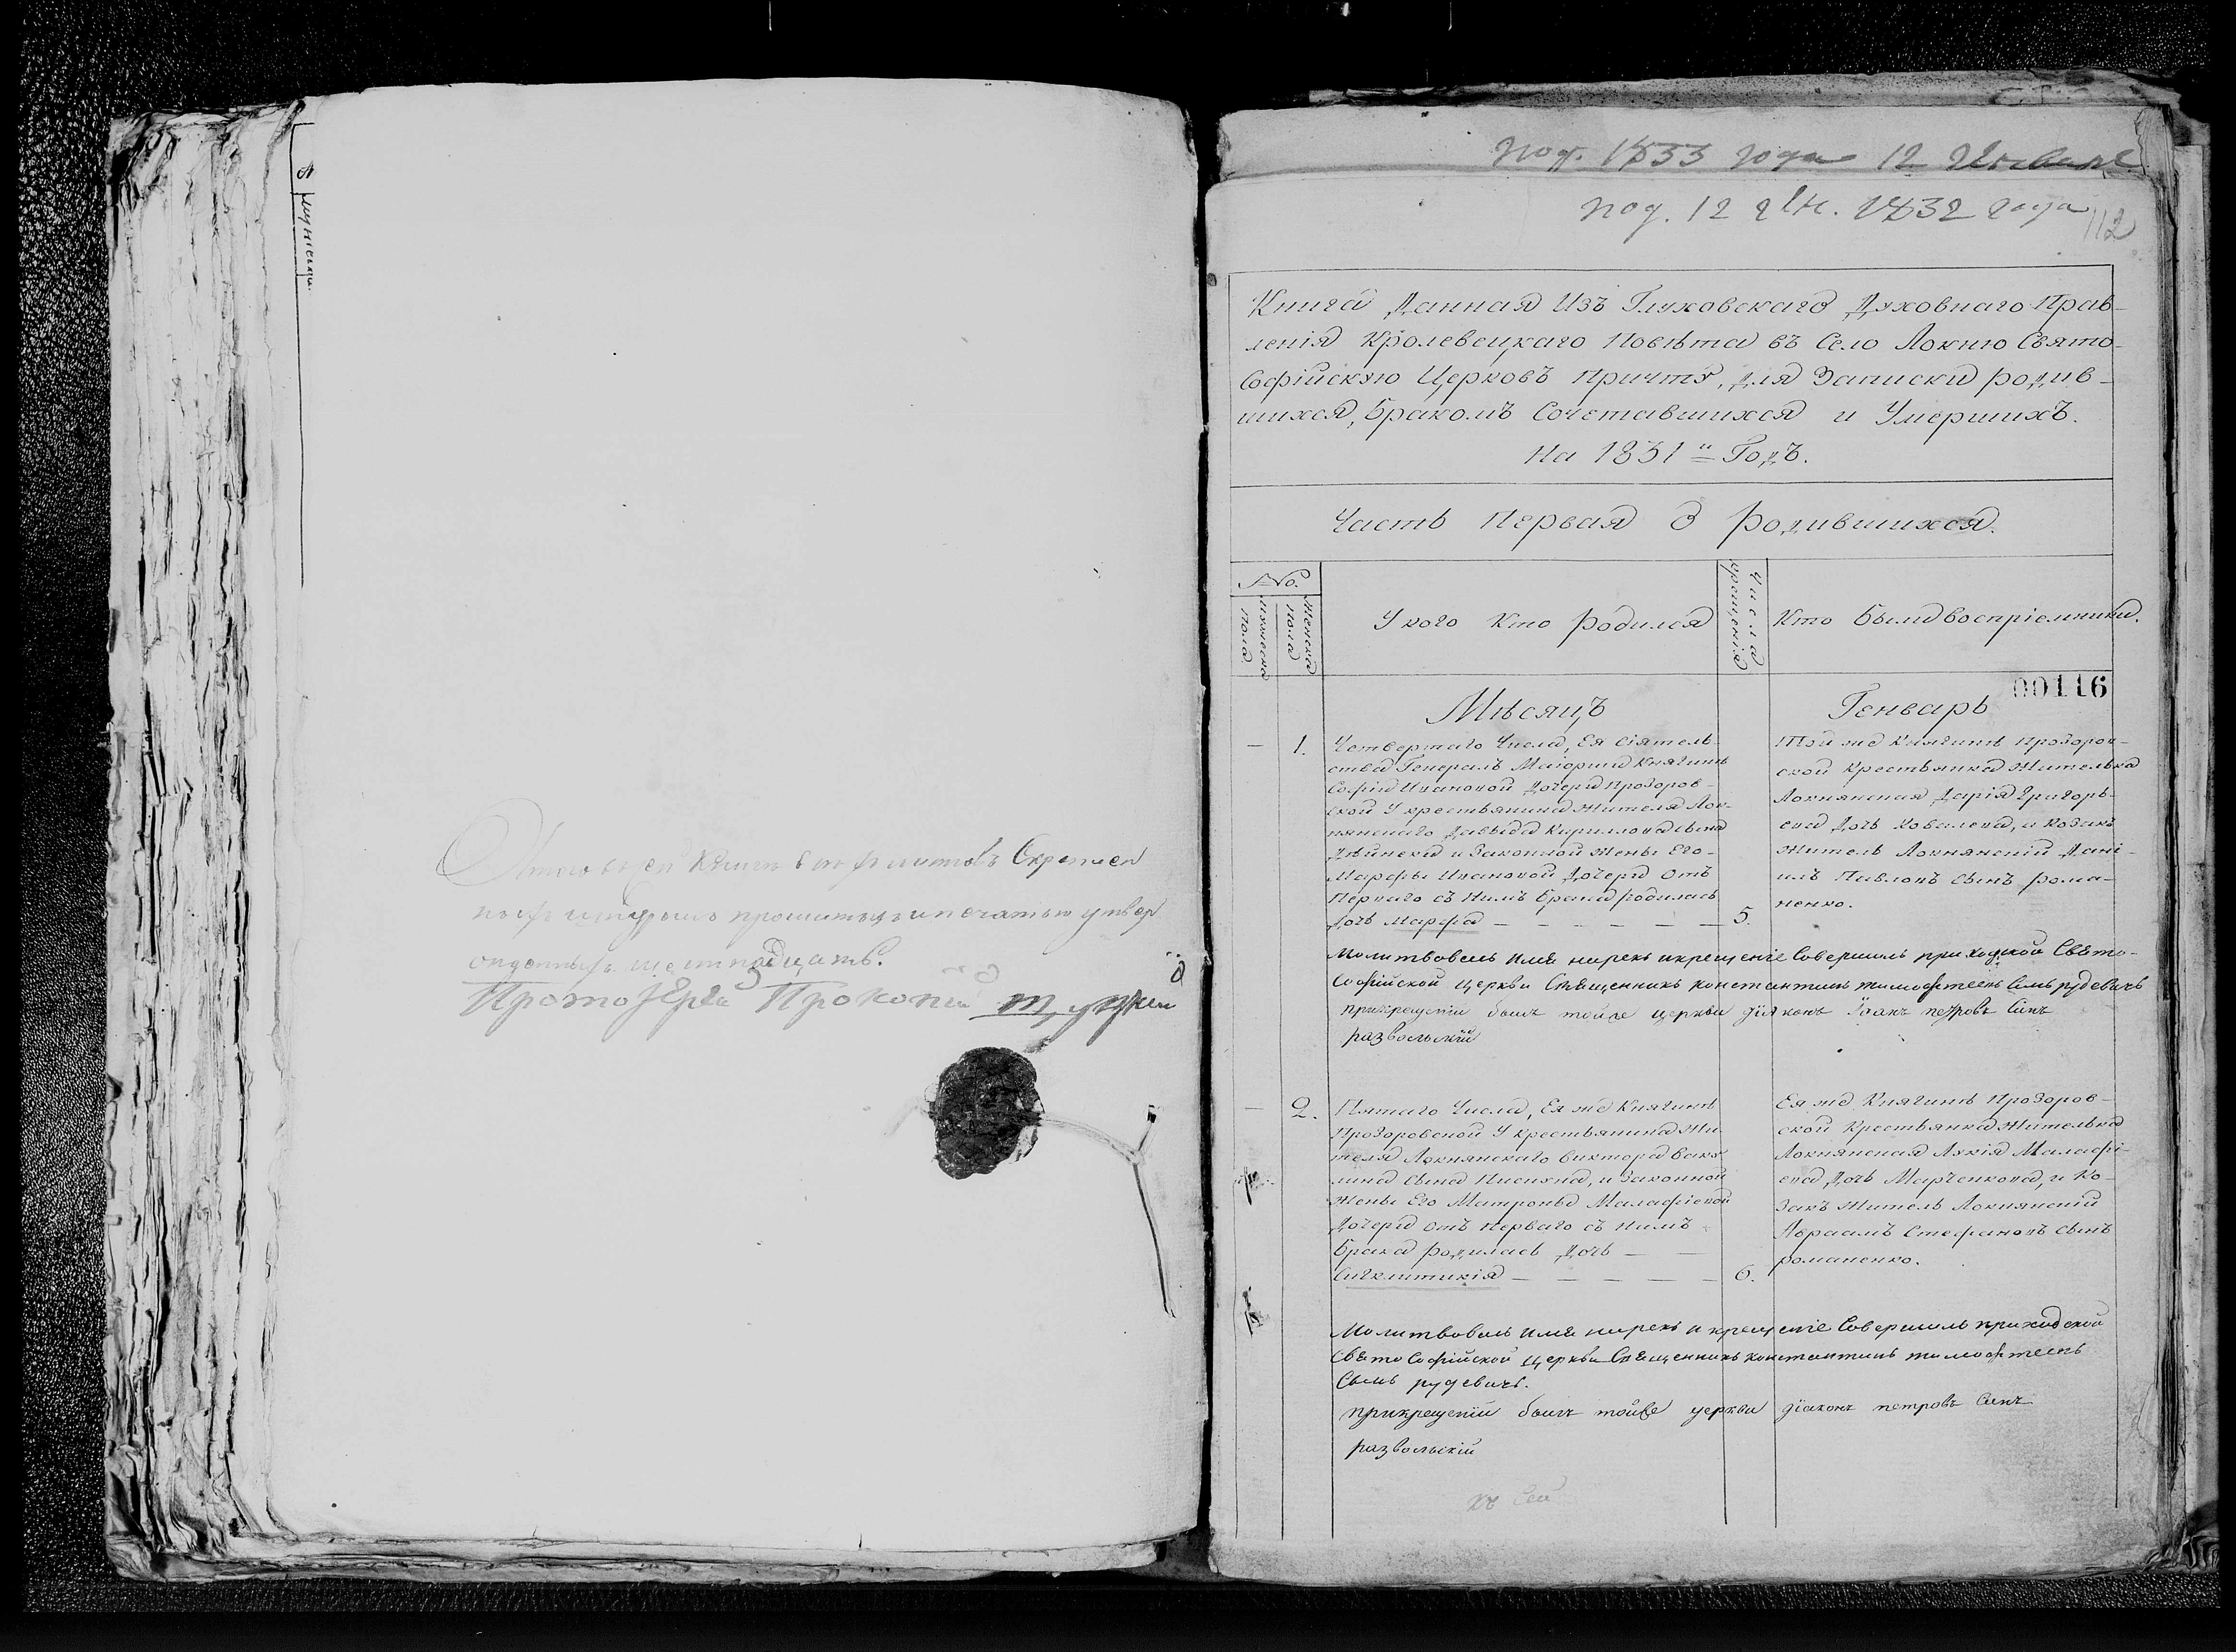 листовъ Скрепиен
прошитыхъ и печатью утвер
жденныхъ шестнадцать.
Протоіерей Прокопій
под. 1833 года 12 Января
под. 12 Ген. 1832 года
112
Книга Данная Изъ Глуховскаго Духовнаго Прав-
ленія Кролевецкаго Повѣта въ Село Локню Свято-
Софійскую Церковъ Причту, для Записки родив-
шихся, Бракомъ Сочетавшихся и Умершихъ.
На 1831й Годъ.
Часть Первая О Родившихся.
No.
мужеска
пола
женска
пола
У кого Кто Родился
Числа
крещенія
Кто Были воспріемники.
00116
Мѣсяцъ
Генварь
1.
Четвертаго Числа, Ея Сіятель-
ства Генералъ Маіорши Княгинѣ
Софіи Ивановой Дочери Прозоров-
ской У крестьянина Жителя Лок-
нянскаго Давыда Кириллова сына
и Законной Жены Его
Марфы Ивановой Дочери Отъ
Перваго съ Нимъ Брака родилась
Дочь Марфа
5.
Той же Княгинѣ Прозоров-
ской Крестьянка Жителька
Локнянская Дарія Григорь-
ева Дочь Ковалева, и Козакъ
Житель Локнянскій Дані-
илъ Павловъ Сынъ Рома-
ненко.
Молитвовалъ имя нарекъ и крещеніе Совершилъ приходской Свято-
Софійской Церкви Священникъ Константинъ Тимофтеевъ Сынъ Рудевичъ
при крещеніи былъ тойже церкви діяконъ Іоанъ петровъ Синъ
развольскій
2.
Пятаго Числа, Ея же Княгинѣ
Прозоровской У крестьянина Жи-
теля Локнянскаго Виктора Ваку-
лина Сына и Законной
Жены Его Матроны Малафіевой
Дочери Отъ Перваго съ Нимъ
Брака родилась Дочь
Сигклитикія
6.
Ея же Княгинѣ Прозоров-
ской Крестьянка Жителька
Локнянская Лукія Малафі-
ева Дочь Марченкова, и Ко-
закъ Житель Локнянскій
Авраамъ Стефановъ Сынъ
романенко.
Молитвовалъ имя нарекъ и крещеніе Совершилъ приходской
Свято Софійской церкви Священникъ константинъ тимофтеевъ
Сынъ рудевичъ.
при крещеніи былъ тойже церкви діаконъ петровъ Синъ
развольскій
къ Сей